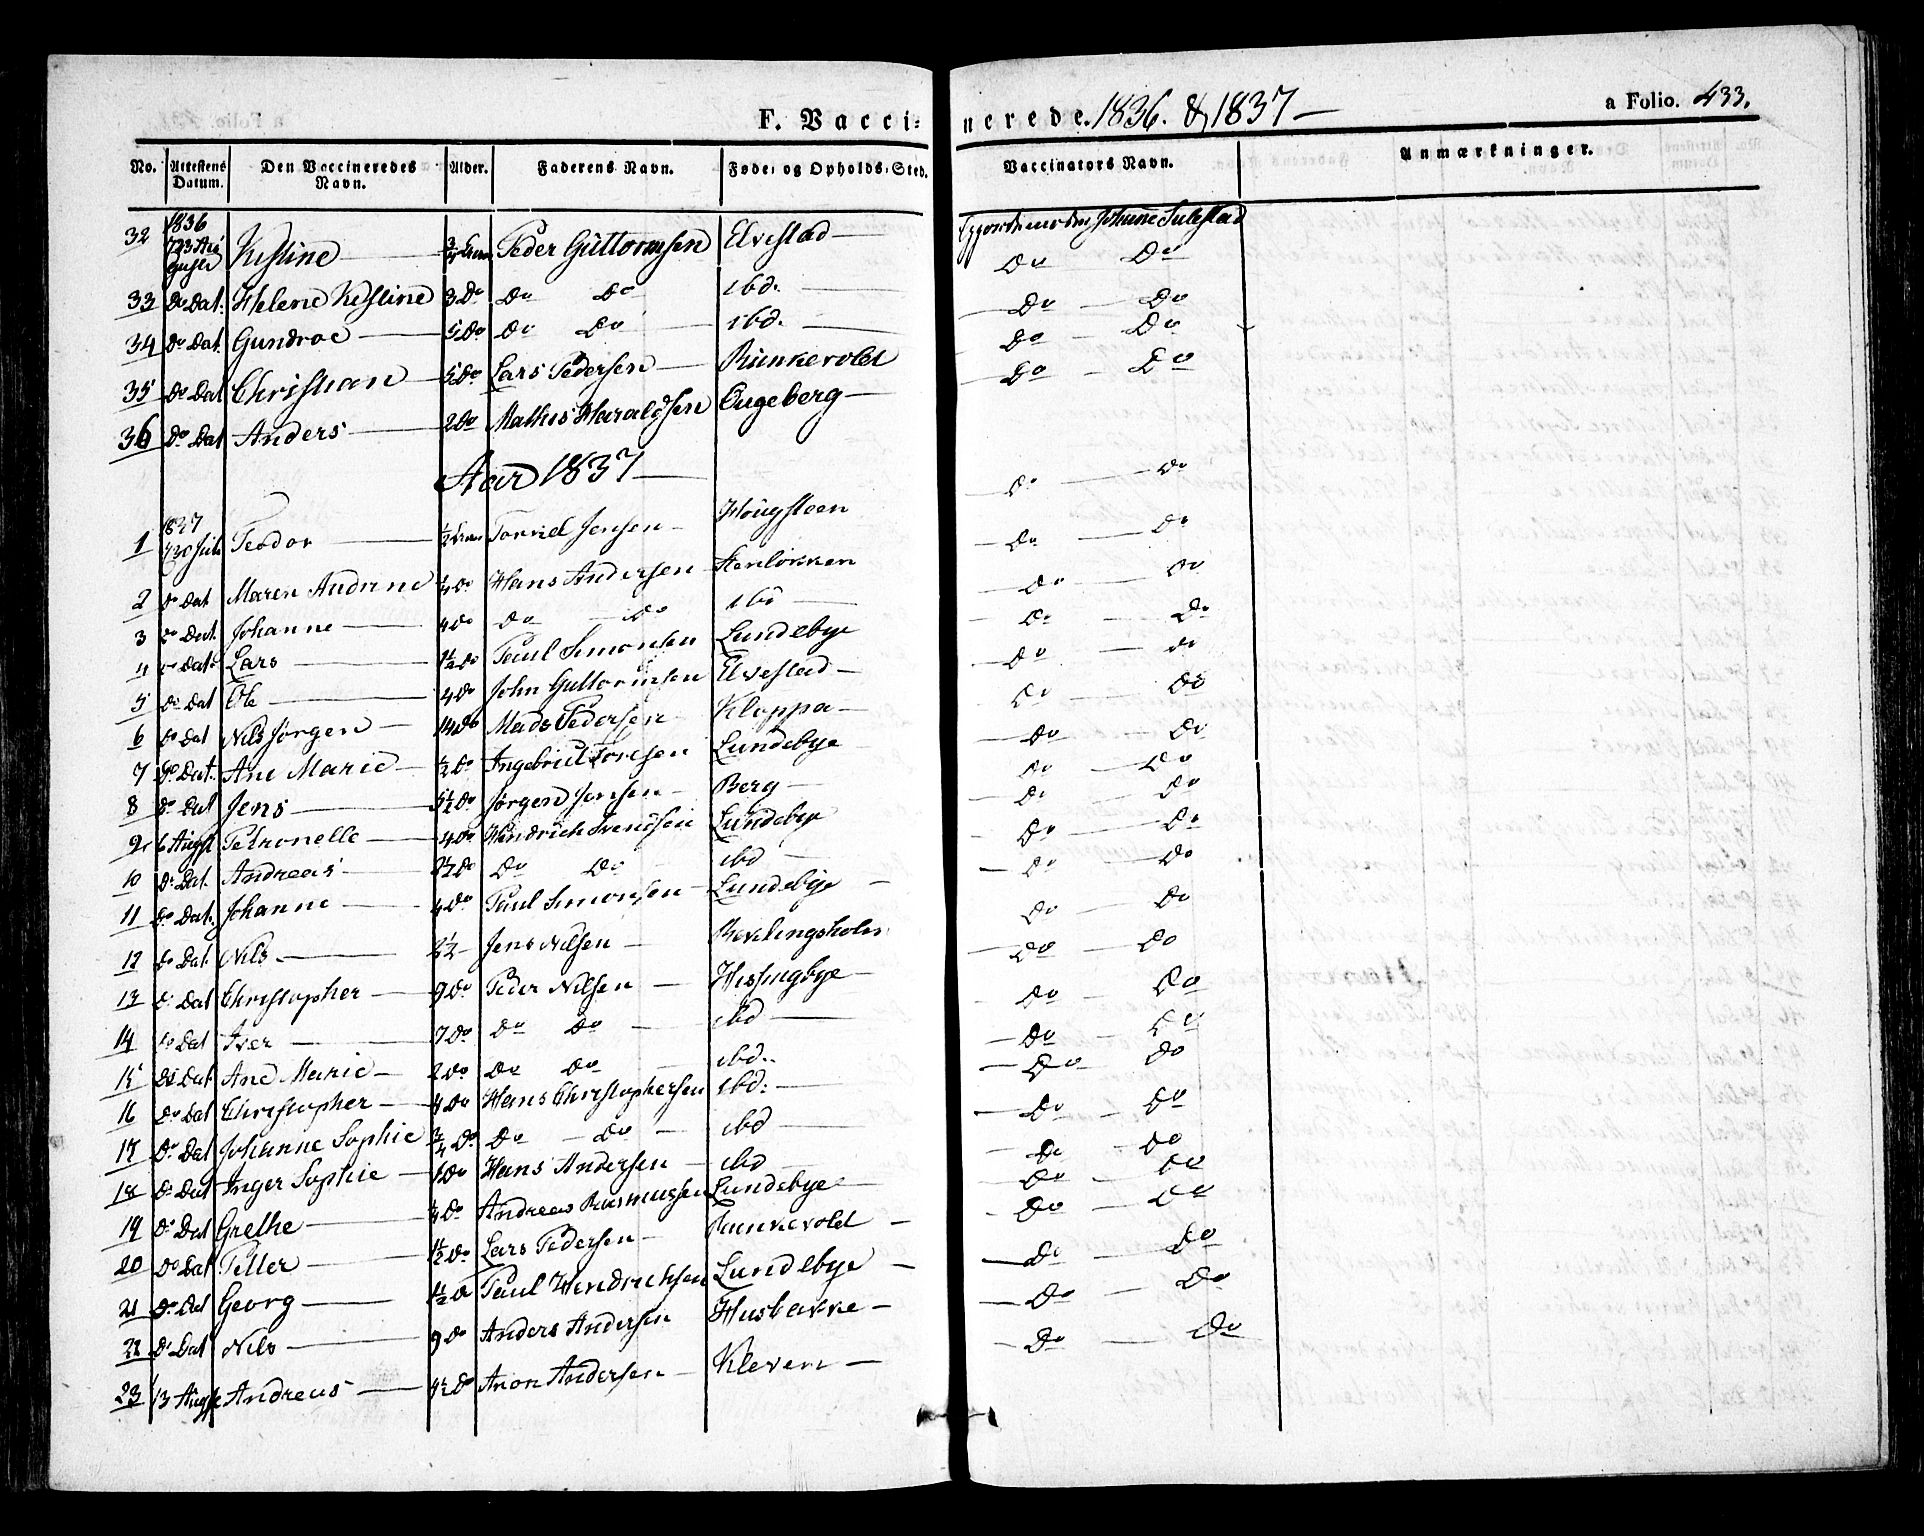 F. Vaccinerede. 1836. & 1837 — a Folio. 433.
No. Attestens Datum. Den Vaccineredes Navn. Alder. Faderens Navn. Føde- og Opholds-Sted. Vaccinators Navn. Anmærkninger.
1836
32 Kistine — Peder Guttormsen Elvestad — Johanne Sulestad
33 Do Dat. Helene Kistine 3 Do Do Do ibd. — Do Do
34 Do Dat. Gundroe — 5 Do Do Do — ibd. — Do — Do
35 Do Dat Christian — 5 Do Lars Pedersen — Runkevold Do Do
36 Do Dat Anders — 2 Do Mathis Haraldsen Engeberg — Do — Do
Aar 1837 —
1837
1 Teodor — Torkel Jensen — Hougsteen Do — Do
2 Do Dat Maren Andrine Do Hans Andersen Stenløkken — Do — Do
3 Do Dat. Johanne — 4 Do Do — Do ibd — Do — Do
4 Do Dat. Lars — 1½ Do Paul Simonsen Lundebye — Do — Do
5 Do Dat Ole — 4 Do John Guttormsen Elvestad — Do — Do
6 Do Dat Nils Jørgen — Do Mads Pedersen Kloppa — Do — Do
7 Do Dat. Ane Marie — ½ Do Ingebriet Toresen Lundebye — Do — Do
8 Do Dat Jens — Do Jørgen Jensen — Berg — Do — Do
9 6 August Petronelle — 4 Do Hindrich Svendsen Lundebye — Do — Do
10 Do Dat. Andreas — Do Do Do ibd — Do — Do
11 Do Dat. Johanne — 4 Do Paul Simonsen — Lundebye — Do — Do
12 Do Dat. Nils — 2½ — Jens Nilsen — — Do — Do
13 Do Dat Christopher — 9 Do Peder Nilsen — Hissingbye — — Do — Do
14 Do Dat Iver — 7 Do Do Do — ibd — — Do — Do
15 Do Dat Ane Marie — 2 Do Do Do — ibd. — Do — Do
16 Do Dat Christopher — 4 Do Hans Christophersen ibd. — — Do — Do
17 Do Dat Johanne Sophie ¾ Do Do — Do — ibd — — Do — Do
18 Do Dat Inger Sophie — Do Hans Andersen — ibd — Do — Do
19 Do Dat Grethe — Do Andreas Rasmussen Lundebye — — Do — Do
20 Do Dat Petter — 1½ Do Lars Pedersen — Runkevold — — Do — Do
21 Do Dat Georg — 1½ Do Paul Hendrichsen Lundebye — — Do — Do
22 Do Dat Nils — 9 Do Anders Andersen Husbakke — — Do — Do
23 13 August Andreas — 4½ Do Aron Andersen — Kleven — — Do — Do